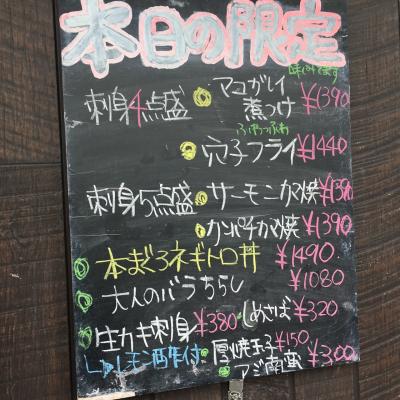 本日の限定
味付けてます
刺身4点盛 マコガレイ煮つけ ¥1390
ふわっふわ
穴子フライ ¥1440
刺身5点盛 サーモンカマ焼 ¥1390
カンパチカマ焼 ¥1390
本まぐろネギトロ丼 ¥1490
大人のバラちらし ¥1080
生カキ刺身 ¥380 しめさば ¥320
レモン酒牛付 厚焼玉子 ¥150
アジ南蛮 ¥300